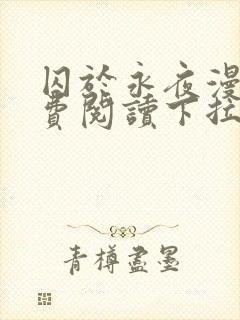 囚於永夜漫
費閱讀下拉
青樽盡墨